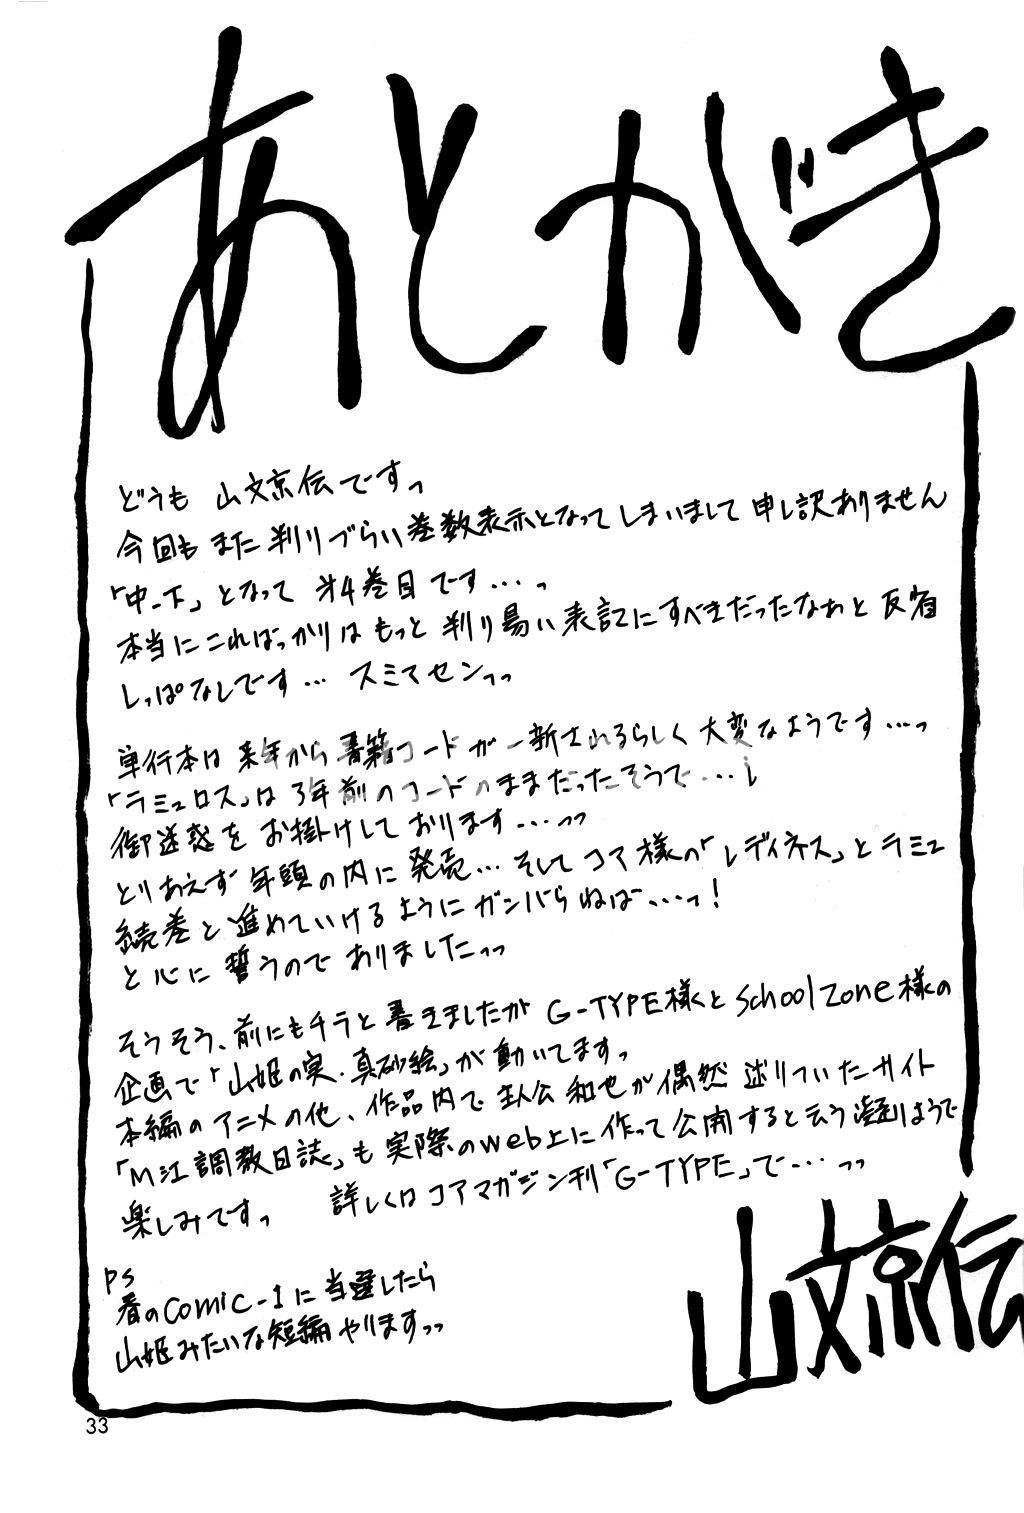 あとがき
どうも 山文京伝ですっ
今回も また 判りづらい 巻数表示となってしまいまして 申し訳ありません
「中-下」となって 第4巻目です…っ
本当にこればっかりは もっと 判り易い 表記にすべきだったなぁと 反省
しっぱなしです… スミマセンっっ
単行本は 来年から 書籍コードが一新されるらしく 大変なようです…っ
「ラミュロス」は 3年前のコードのままだったそうで…
御迷惑を お掛けしております…っっ
とりあえず 年頭の内に 発売… そして コア様の「レディネス」と ラミュ
続巻と 進めていけるようにガンバらねば…っ!
と心に 誓うのでありましたっっ
そうそう、前にもチラと書きましたが G-TYPE様とSchoolZone様の
企画で「山姫の実・真砂絵」が動いてます。
本編のアニメの他、作品内で 主人公 和也が偶然 辿りついたサイト
「M江調教日誌」も 実際のweb上に 作って 公開すると云う 凝りようで
楽しみですっ 詳しくはコアマガジン刊「G-TYPE」で…っっ
PS
春のComic-1に当選したら
山姫みたいな短編やりますっっ
山文京伝
33